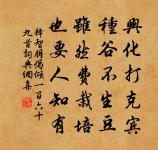 興化打克賓
種谷不生豆
雖然費栽培
也要人知有
釋智朋偈傾一百六十
九首詞典網喜